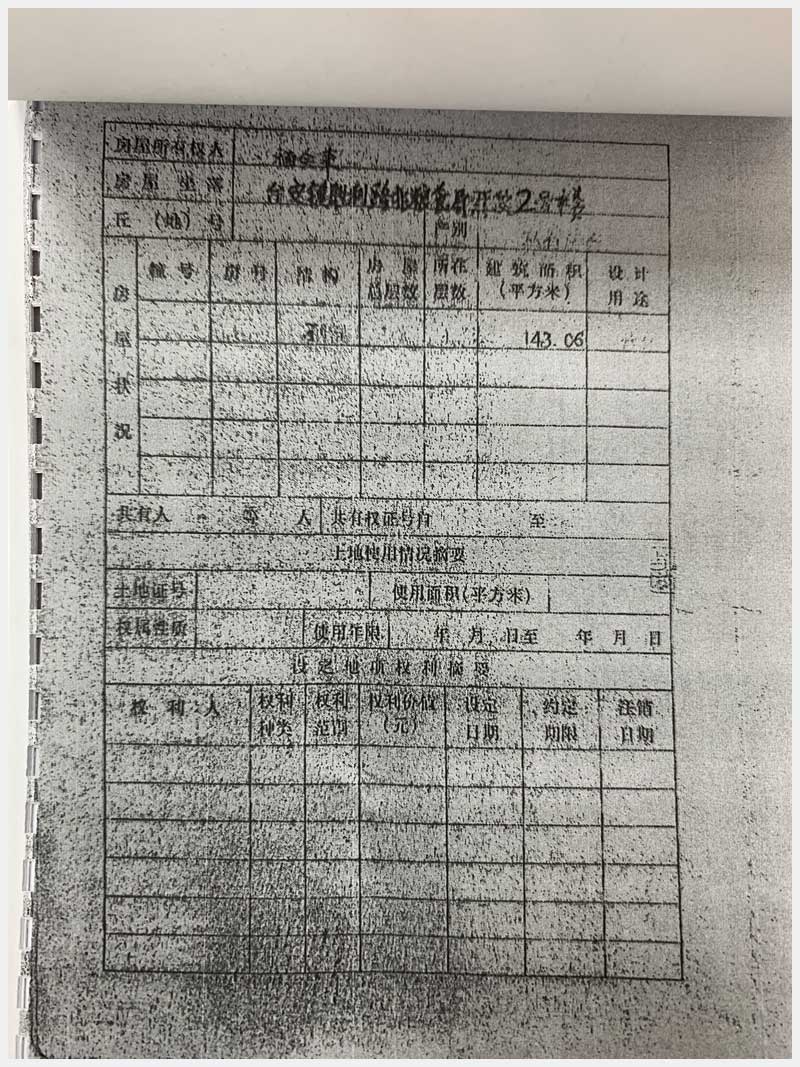 房屋所有权人
房屋坐落 台安镇胜利路北粮食局开发2号楼
丘（地）号 产别
房屋状况
幢号 房号 结构 房屋总层数 所在层数 建筑面积（平方米） 设计用途
143.06
共有人 等 人 共有权证号自 至
土地使用情况摘要
土地证号 使用面积(平方米)
权属性质 使用年限 年 月 日至 年 月 日
设定他项权利摘要
权利人 权利种类 权利范围 权利价值（元） 设定日期 约定期限 注销日期